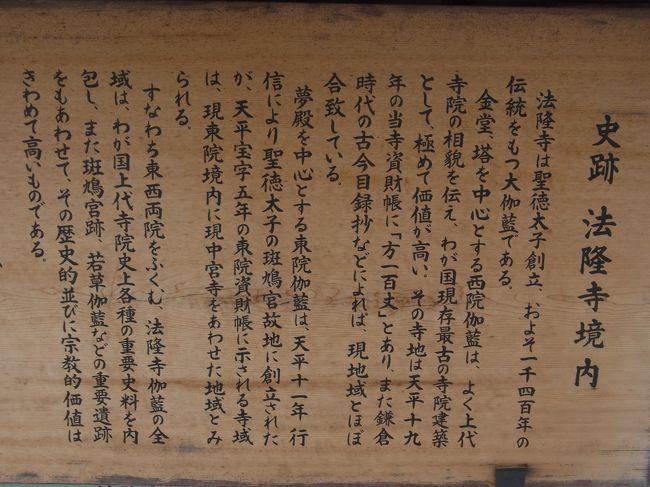 史跡 法隆寺境内
法隆寺は聖徳太子創立、およそ一千四百年の
伝統をもつ大伽藍である。
金堂、塔を中心とする西院伽藍は、よく上代
寺院の相貌を伝え、わが国現存最古の寺院建築
として、極めて価値が高い、その寺地は天平十九
年の当寺資財帳に「方一百丈」とあり、また鎌倉
時代の古今目録抄などによれば、現地域とほぼ
合致している。
夢殿を中心とする東院伽藍は、天平十一年 行
信により聖徳太子の斑鳩宮故地に創立された
が、天平宝字五年の東院資財帳に示される寺域
は、現東院境内に現中宮寺をあわせた地域とみ
られる。
すなわち東西両院をふくむ、法隆寺伽藍の全
域は、わが国上代寺院史上各種の重要史料を内
包し、また斑鳩宮跡、若草伽藍などの重要遺跡
をもあわせて、その歴史的並びに宗教的価値は
きわめて高いものである。